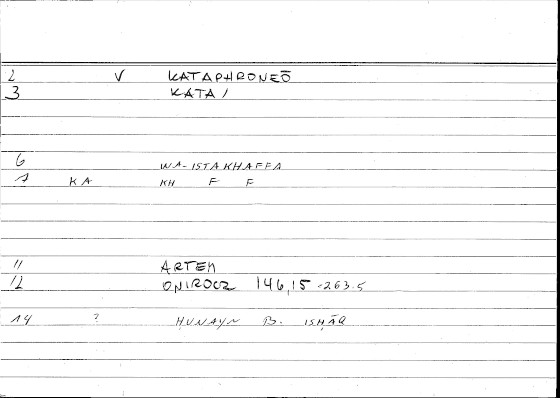 2 V KATAPHRONEŌ
3 KATA/
6 WA-ISTAKHAFFA
7 KA KH F F
11 ARTEM
12 ONIROCR 146,15-263.5
14 ? ḤUNAYN B. ISḤĀQ